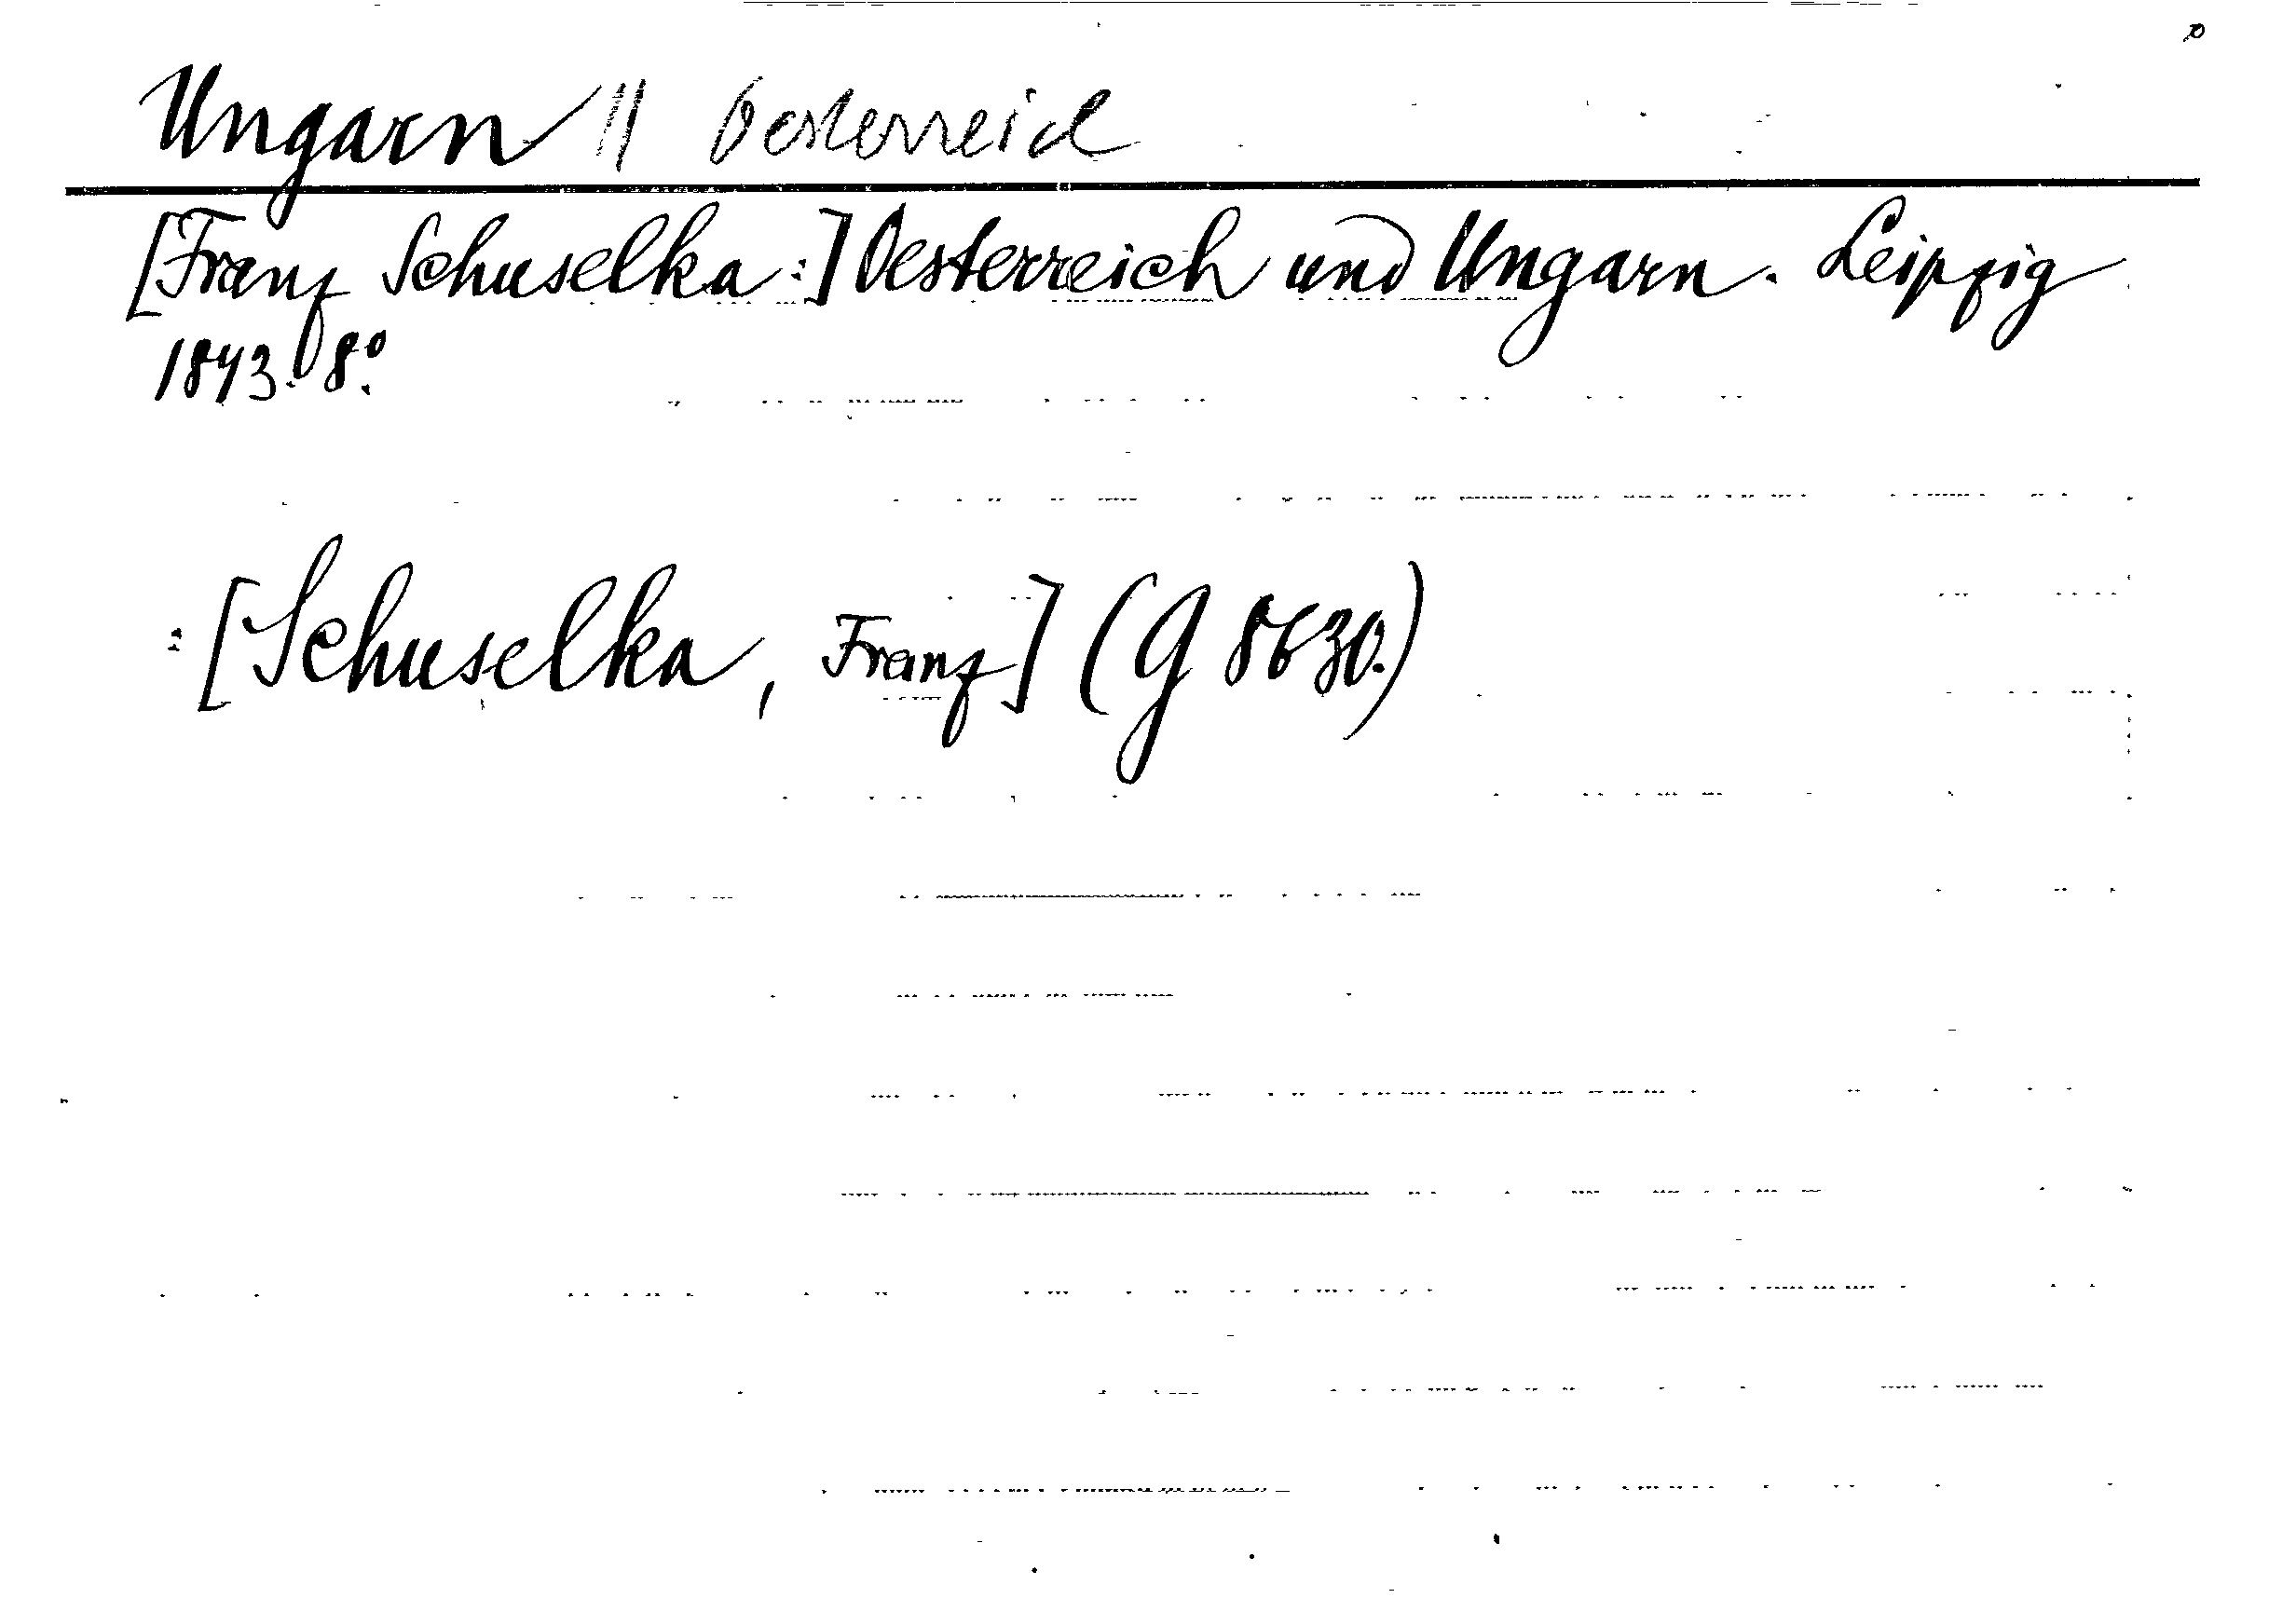 Ungarn // Oesterreich
[Franz Schuselka:] Oesterreich und Ungarn. Leipzig
1843. 8º.
: [Schuselka, Franz] (G 8630.)